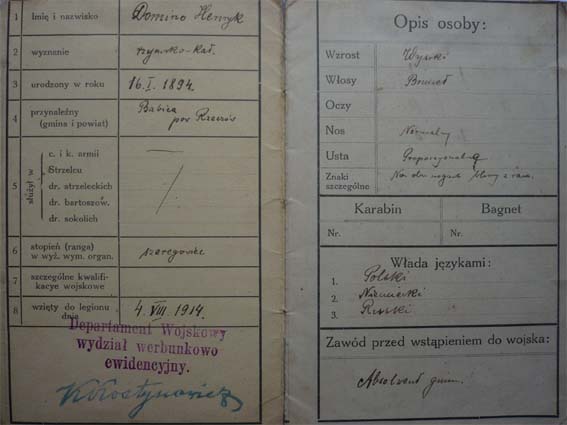 1 Imię i nazwisko Domino Henryk
2 wyznanie rzymsko-kat.
3 urodzony w roku 16. I. 1894.
4 przynależny (gmina i powiat) Babica pow Rzeszów
5 służył w
c. i k. armii —
Strzelcu
dr. strzeleckich
dr. bartoszow.
dr. sokolich
6 stopień (ranga) w wyż. wym. organ. szeregowiec
7 szczególne kwalifikacye wojskowe
8 wzięty do legionu dnia 4. VIII. 1914.
Departament Wojskowy
wydział werbunkowo
ewidencyjny.
Opis osoby:
Wzrost Wysoki
Włosy Brunet
Oczy
Nos Normalny
Usta Proporcyonalne
Znaki szczególne Na
Karabin Bagnet
Nr. Nr.
Włada językami:
1. Polski
2. Niemiecki
3. Ruski
Zawód przed wstąpieniem do wojska:
Absolwent gimn.